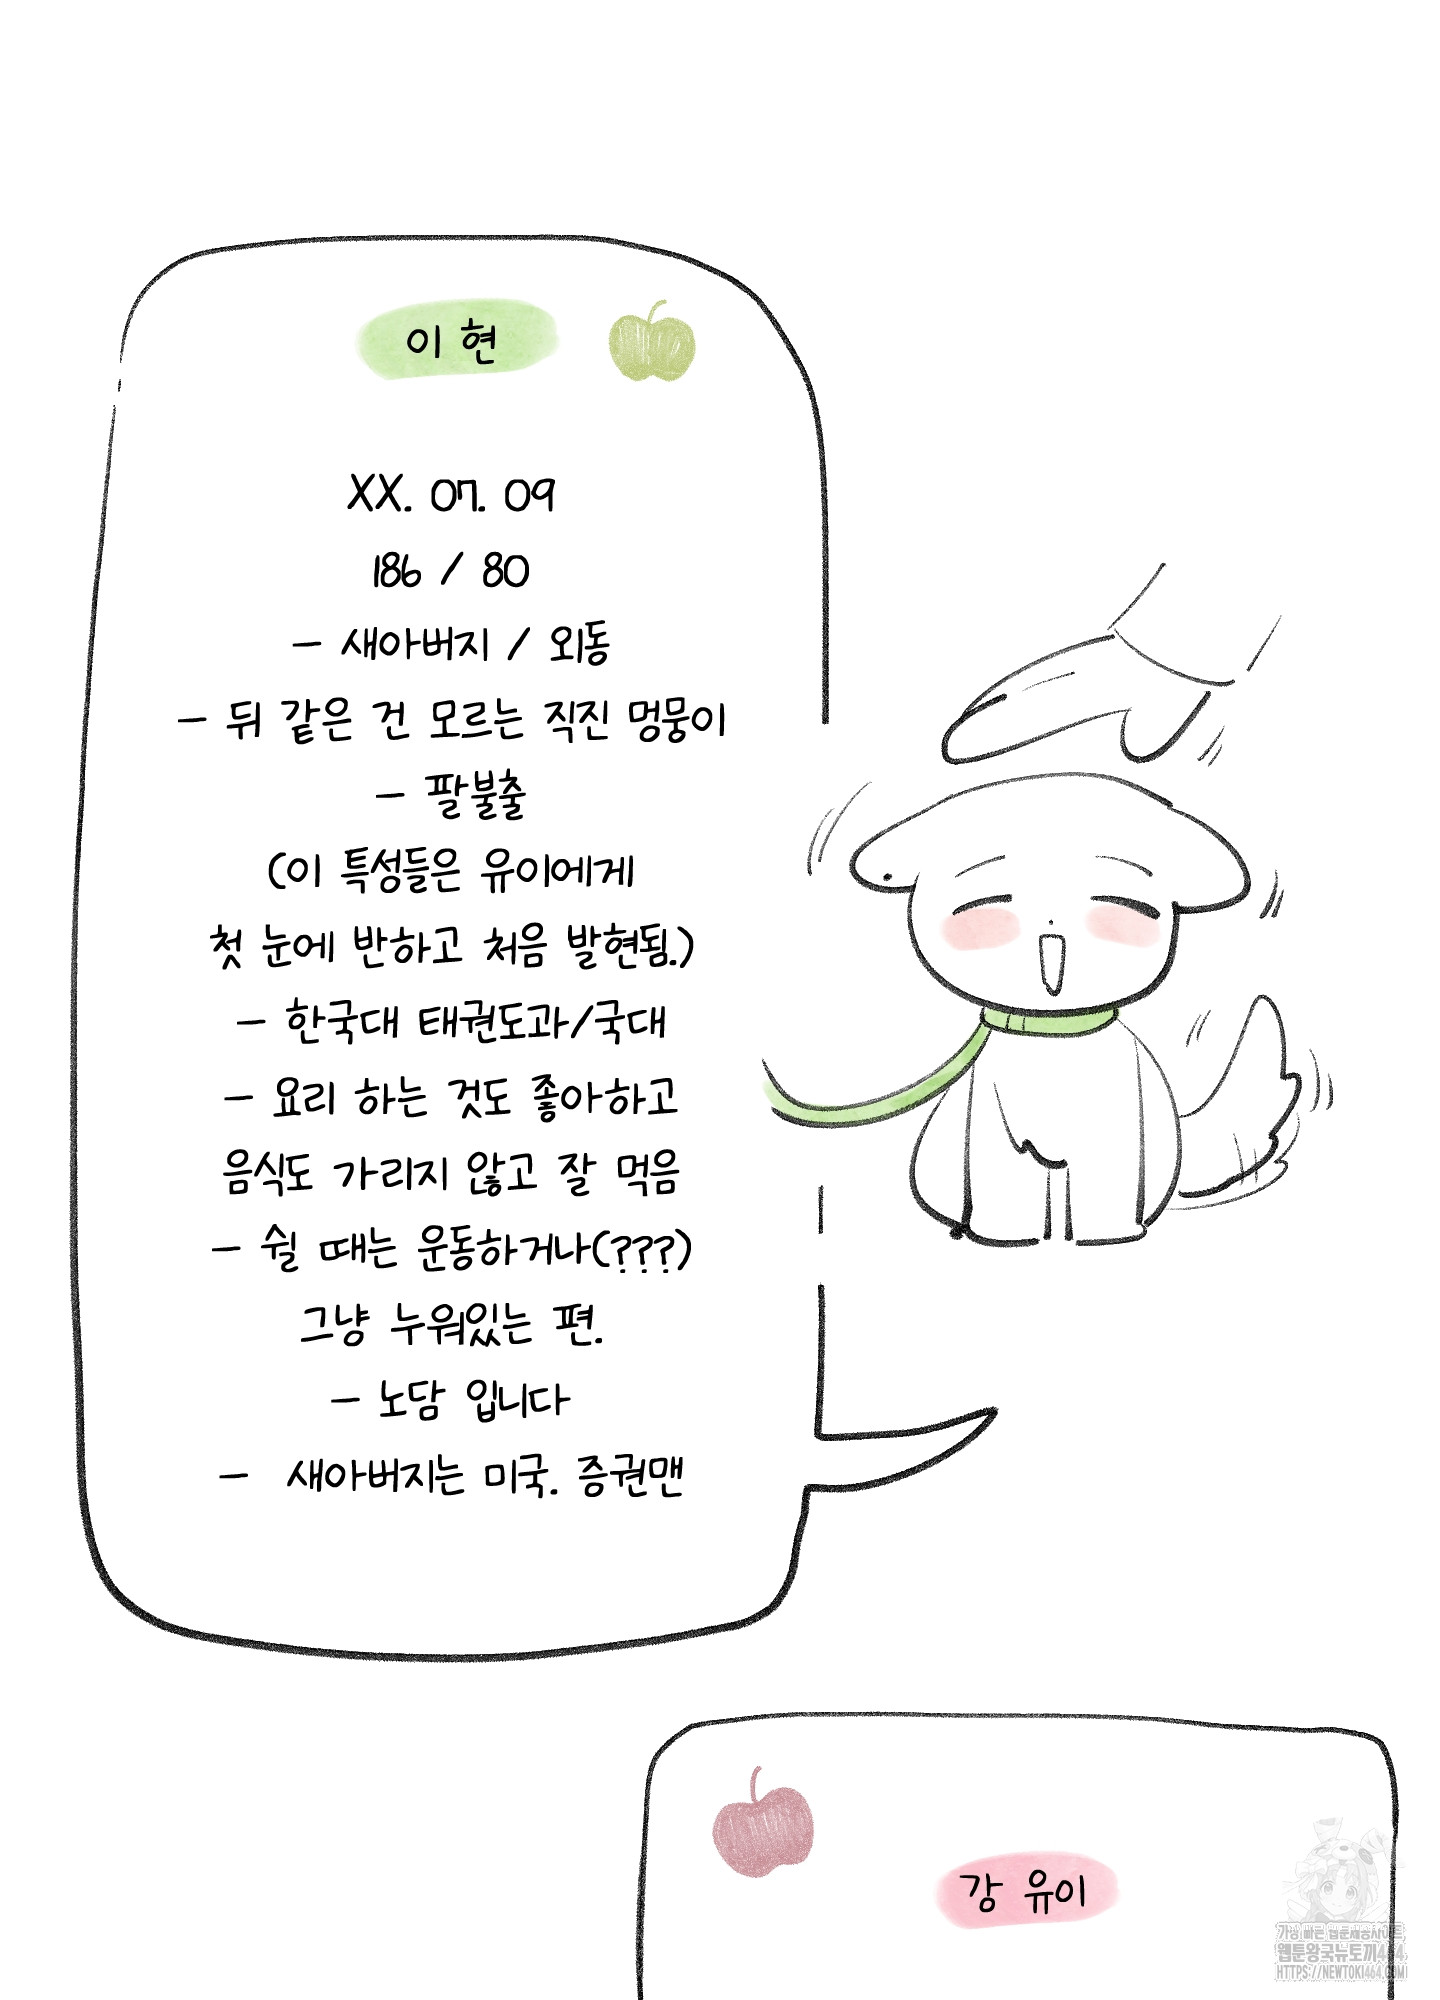 이 현
XX. 07. 09
186 / 80
- 새아버지 / 외동
- 뒤 같은 건 모르는 직진 멍뭉이
- 팔불출
(이 특성들은 유이에게
첫 눈에 반하고 처음 발현됨.)
- 한국대 태권도과/국대
- 요리 하는 것도 좋아하고
음식도 가리지 않고 잘 먹음
- 쉴 때는 운동하거나(???)
그냥 누워있는 편.
- 노담 입니다
- 새아버지는 미국. 증권맨
강 유이
가장 빠른 웹툰제공사이트
웹툰왕국뉴토끼464
HTTPS://NEWTOKI464.COM